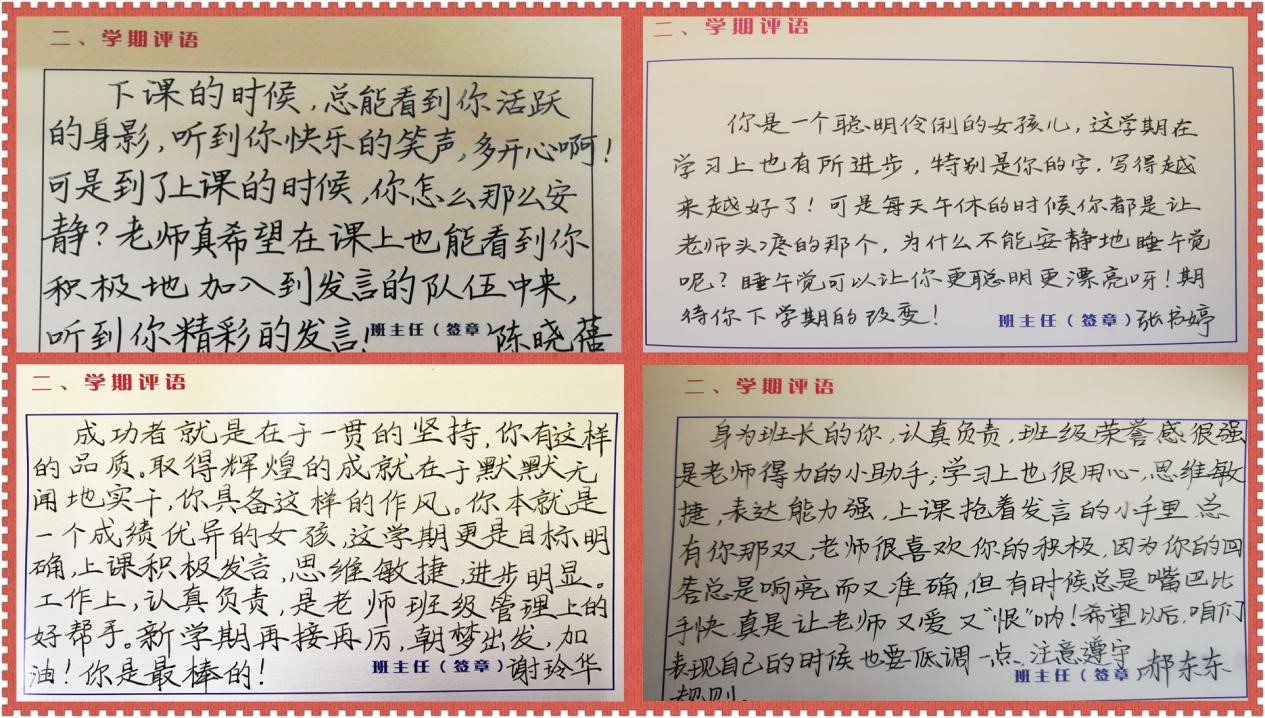 二、学期评语
下课的时候,总能看到你活跃
的身影,听到你快乐的笑声,多开心啊!
可是到了上课的时候,你怎么那么安
静?老师真希望在课上也能看到你
积极地加入到发言的队伍中来,
听到你精彩的发言!
班主任(签章)陈晓蓓
二、学期评语
你是一个聪明伶俐的女孩儿,这学期在
学习上也有所进步,特别是你的字,写得越
来越好了!可是每天午休的时候你都是让
老师头疼的那个,为什么不能安静地睡午觉
呢?睡午觉可以让你更聪明更漂亮呀!期
待你下学期的改变!
班主任(签章)张书婷
二、学期评语
成功者就是在于一贯的坚持,你有这样
的品质。取得辉煌的成就在于默默无
闻地实干,你具备这样的作风。你本就是
一个成绩优异的女孩,这学期更是目标明
确,上课积极发言,思维敏捷,进步明显。
工作上,认真负责,是老师班级管理上的
好帮手。新学期再接再厉,朝梦出发,加
油!你是最棒的!
班主任(签章)谢玲华
二、学期评语
身为班长的你,认真负责,班级荣誉感很强
是老师得力的小助手;学习上也很用心,思维敏
捷,表达能力强,上课抢着发言的小手里总
有你那双,老师很喜欢你的积极,因为你的回
答总是响亮而又准确,但有时候总是嘴巴比
手快,真是让老师又爱又“恨”呐!希望以后,咱们
表现自己的时候也要低调一点、注意遵守
规则。
班主任(签章)郝东东